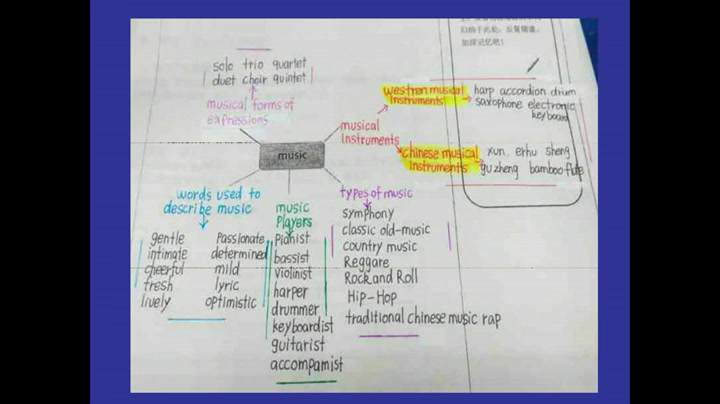 归纳于此处，反复诵读，
加深记忆吧！
solo trio quartet
duet choir quintet
musical forms of
expressions
music
musical
instruments
westren musical
instruments
harp accordion drum
saxophone electronic
keyboard
chinese musical
instruments
xun erhu sheng
guzheng bamboo flute
words used to
describe music
gentle Passionate
intimate determined
cheerful mild
fresh lyric
lively optimistic
music
Players
Pianist
bassist
violinist
harper
drummer
keyboardist
guitarist
accompamist
types of music
symphony
classic old-music
country music
Reggare
Rock and Roll
Hip-Hop
traditional chinese music rap